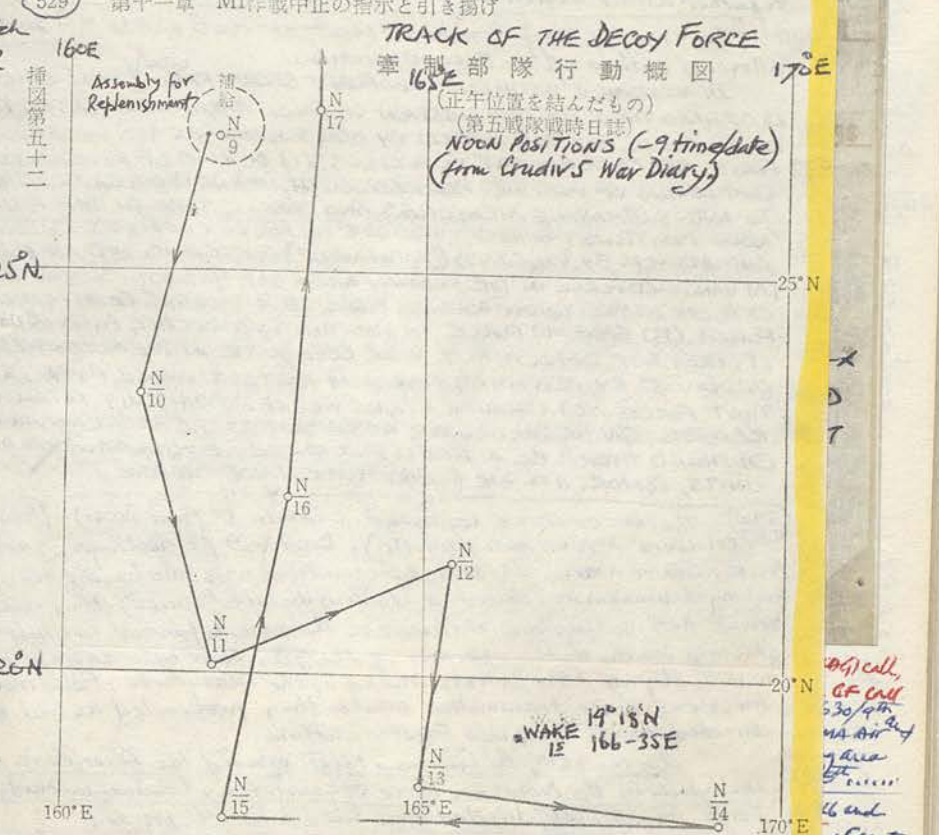 529 第十一章 MI作戦中止の指示と引き揚げ
TRACK OF THE DECOY FORCE
牽制部隊行動概図
(正午位置を結んだもの)
(第五戦隊戦時日誌)
NOON POSITIONS (-9 time/date)
(from Crudiv 5 War Diary.)
挿図第五十二
160E
165°E
170°E
Assembly for
Replenishment
補給
N/9
N/17
25°N
N/10
N/16
N/12
N/11
20°N
WAKE 19° 18'N
IS 166-35E
N/13
N/15
N/14
160°E
165°E
170°E
call,
CF call
630/9th
Air
area
and